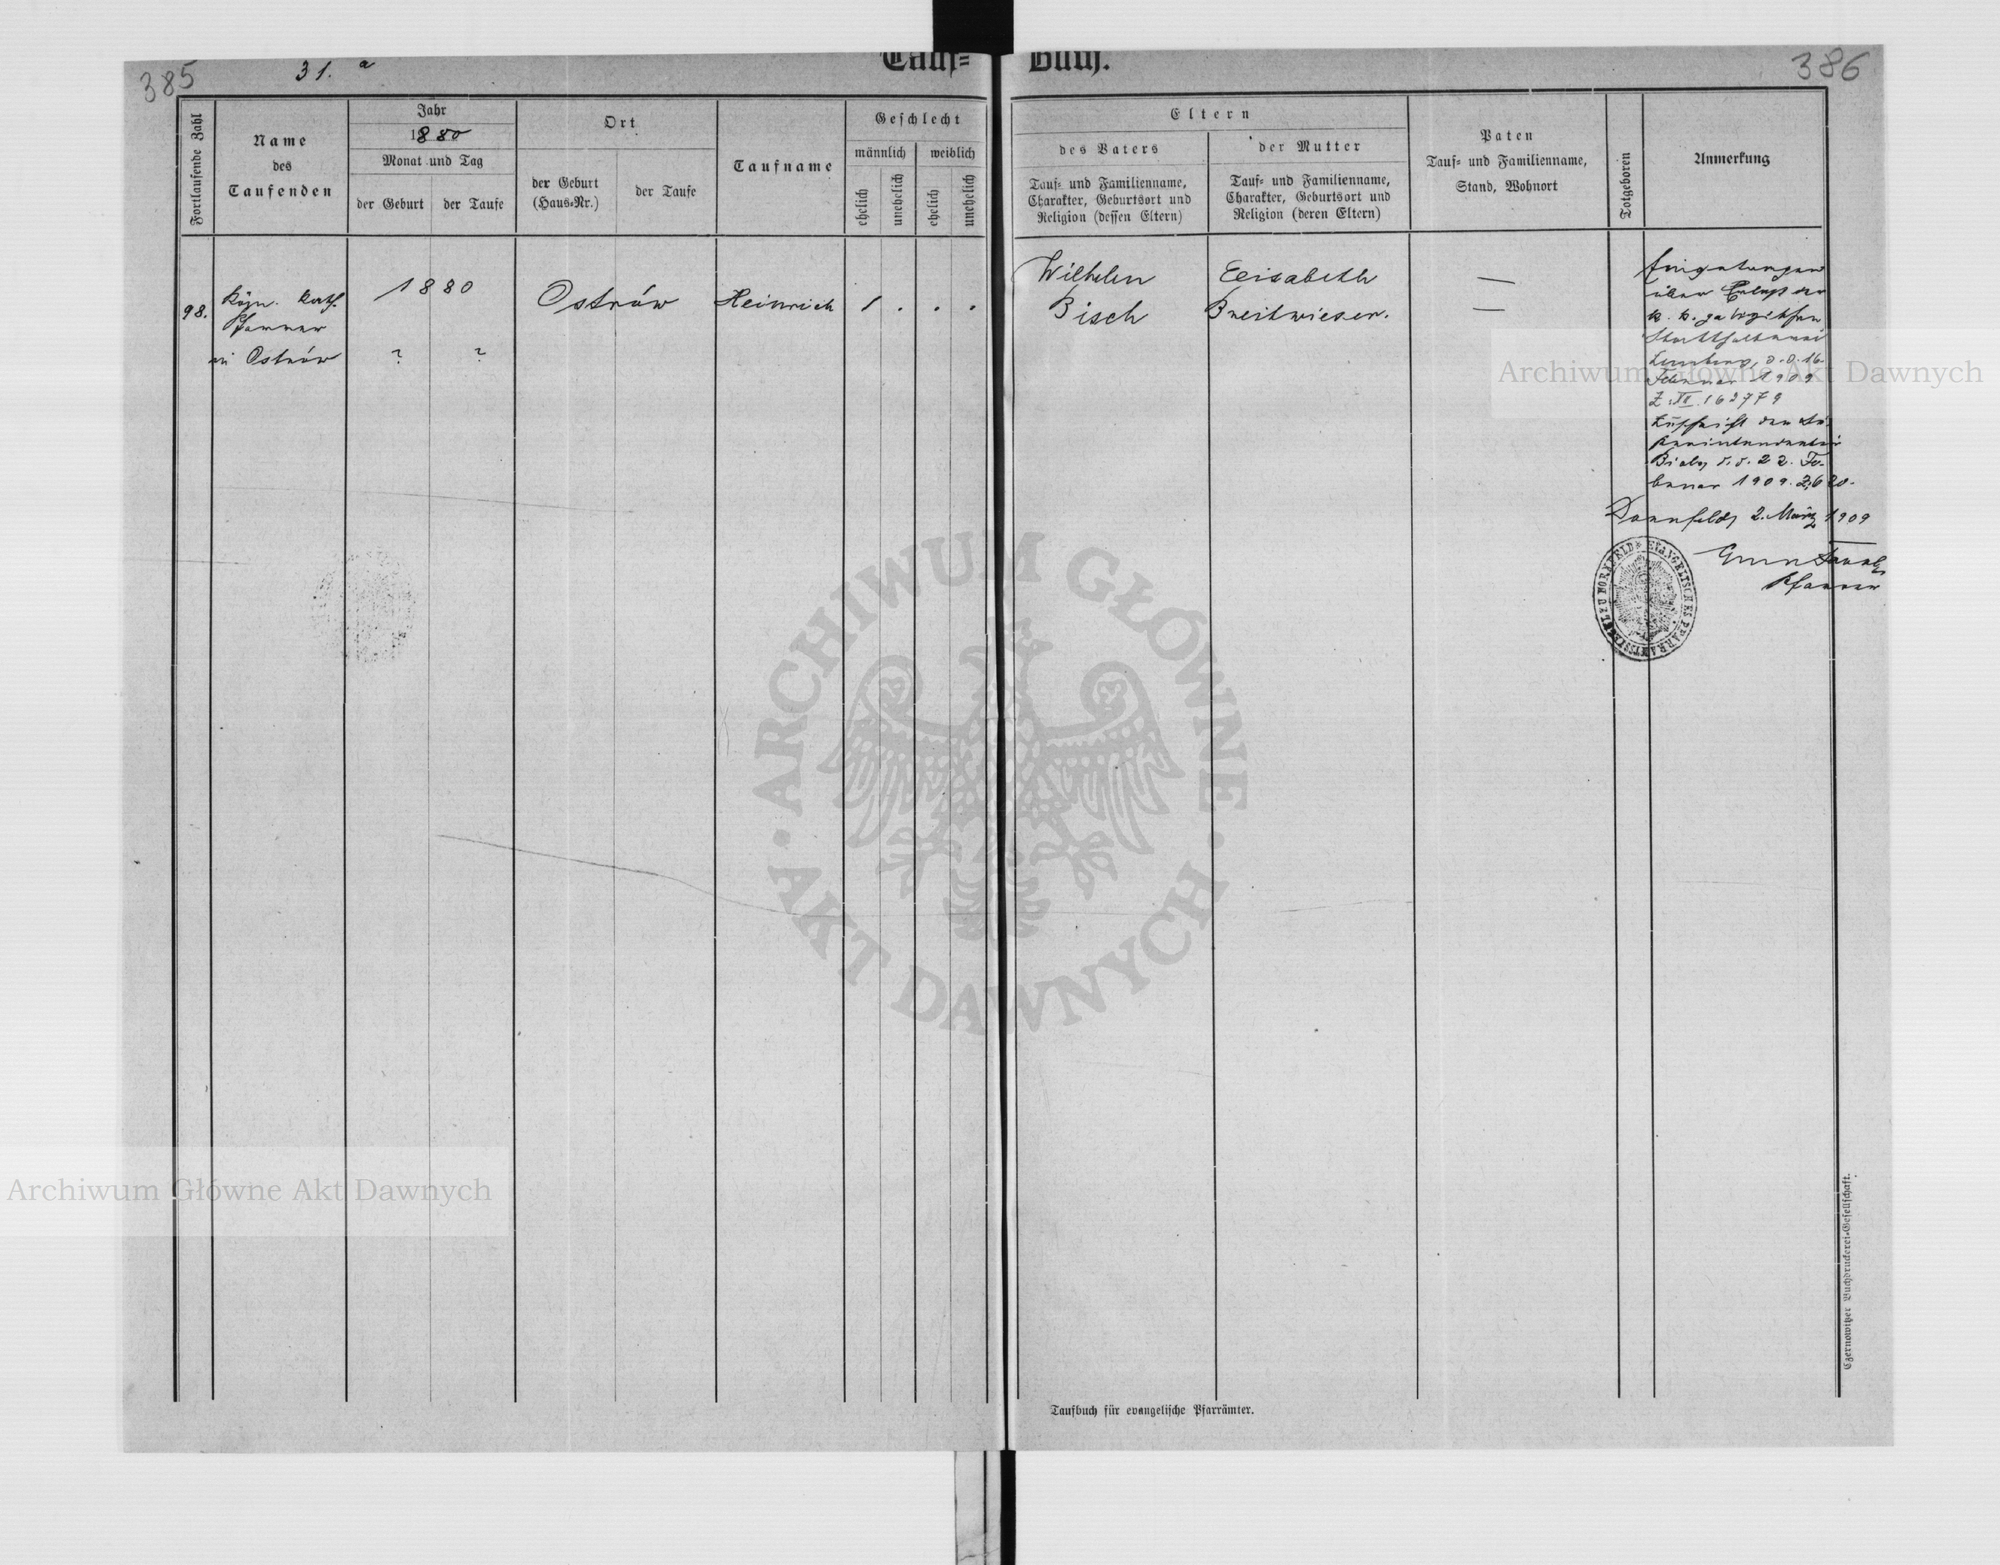 385
31. a
Tauf= Buch.
386
Fortlaufende Zahl
Name
des
Taufenden
Jahr
1880
Monat und Tag
der Geburt
der Taufe
Ort
der Geburt
(Haus=Nr.)
der Taufe
Taufname
Geschlecht
männlich
weiblich
ehelich
unehelich
ehelich
unehelich
Eltern
des Vaters
Tauf= und Familienname,
Charakter, Geburtsort und
Religion (dessen Eltern)
der Mutter
Tauf= und Familienname,
Charakter, Geburtsort und
Religion (deren Eltern)
Paten
Tauf= und Familienname,
Stand, Wohnort
Totgeboren
Anmerkung
98.
Röm. kath.
Pfarrer
in Ostrów
1880
? ?
Ostrów
Heinrich
1 . . .
Wilhelm
Bisch
Elisabeth
Breitwieser.
—
—
Eingetragen
über Erlaß der
k. k. galizischen
Statthalterei
Lemberg, d. d. 16.
Februar 1909
Z. 163779
Zuschrift der Su-
perintendentur
Biala d. d. 22. Fe-
bruar 1909. Z. 620.
Dornfeld, 2. März 1909
Pfarrer
EVANGELISCHES PFARRAMTSSIEGEL ZU DORNFELD
Archiwum Główne Akt Dawnych
ARCHIWUM GŁÓWNE · AKT DAWNYCH ·
Archiwum Główne Akt Dawnych
Taufbuch für evangelische Pfarrämter.
Czernowitzer Buchdruckerei=Gesellschaft.